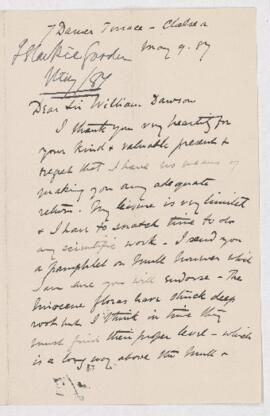 7 Danes Terrace - Chelsea
May 9. 87
J Starkie Gardner
May/87
Dear Sir William Dawson
I thank you very heartily for
your kind & valuable present &
regret that I have no means of
making you any adequate
return. My leisure is very limited
& I have to snatch time to do
any scientific work - I send you
a pamphlet on Mull however which
I am sure you will endorse - The
Miocene floras have struck deep
root but I think in time they
must find their proper level - which
is a long way above the Mull &